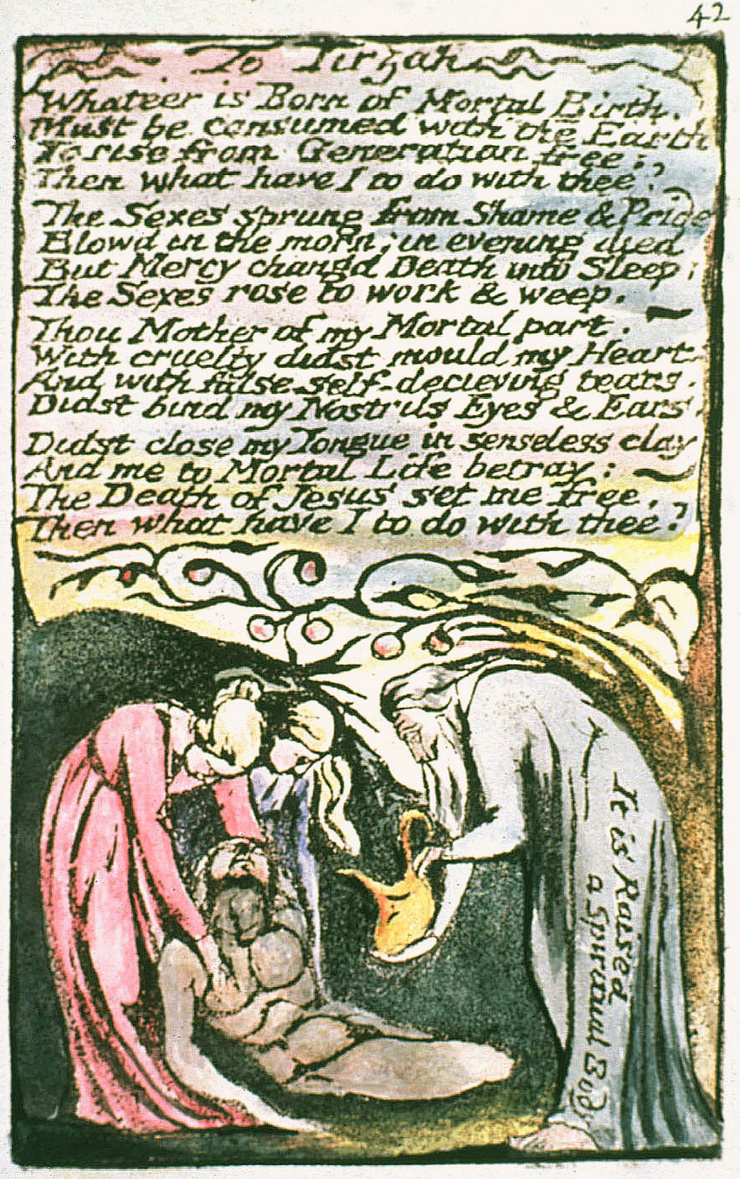 42
To Tirzah
Whate'er is Born of Mortal Birth.
Must be consumed with the Earth
To rise from Generation free;
Then what have I to do with thee?
The Sexes sprung from Shame & Pride
Blow'd in the morn; in evening died
But Mercy chang'd Death into Sleep;
The Sexes rose to work & weep.
Thou Mother of my Mortal part.
With cruelty didst mould my Heart.
And with false self-decieving tears.
Didst bind my Nostrils Eyes & Ears.
Didst close my Tongue in senseless clay
And me to Mortal Life betray:
The Death of Jesus set me free.
Then what have I to do with thee?
It is Raised
a Spiritual Body